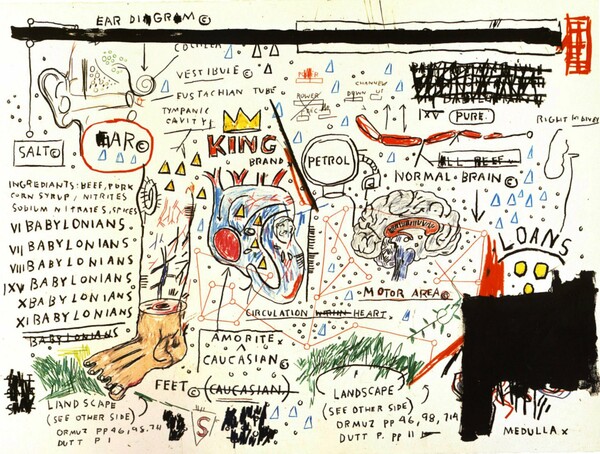 EAR DIAGRAM ©
COCHLEA
VESTIBULE ©
EUSTACHIAN TUBE
TYMPANIC
CAVITY
EAR ©
SALT ©
KING
BRAND
PETROL
POWER
CHANNEL
DOWN UP
IXV PURE.
ALL BEEF
NORMAL BRAIN ©
RIGHT KIDNEY
INGREDIANTS: BEEF, PORK
CORN SYRUP / NITRITES
SODIUM NITRATES, SPICES
VI BABYLONIANS
VII BABYLONIANS
VIII BABYLONIANS
IXV BABYLONIANS
X BABYLONIANS
XI BABYLONIANS
BABYLONIANS
LOANS
MOTOR AREA ©
CIRCULATION WITHIN HEART
AMORITE x
CAUCASIAN ©
(CAUCASIAN)
FEET ©
LANDSCAPE
(SEE OTHER SIDE)
ORMUZ PP 46, 98, 714
DUTT P 1
S
LANDSCAPE
(SEE OTHER SIDE)
ORMUZ PP 46, 98, 714
DUTT P. PP 11
MEDULLA x